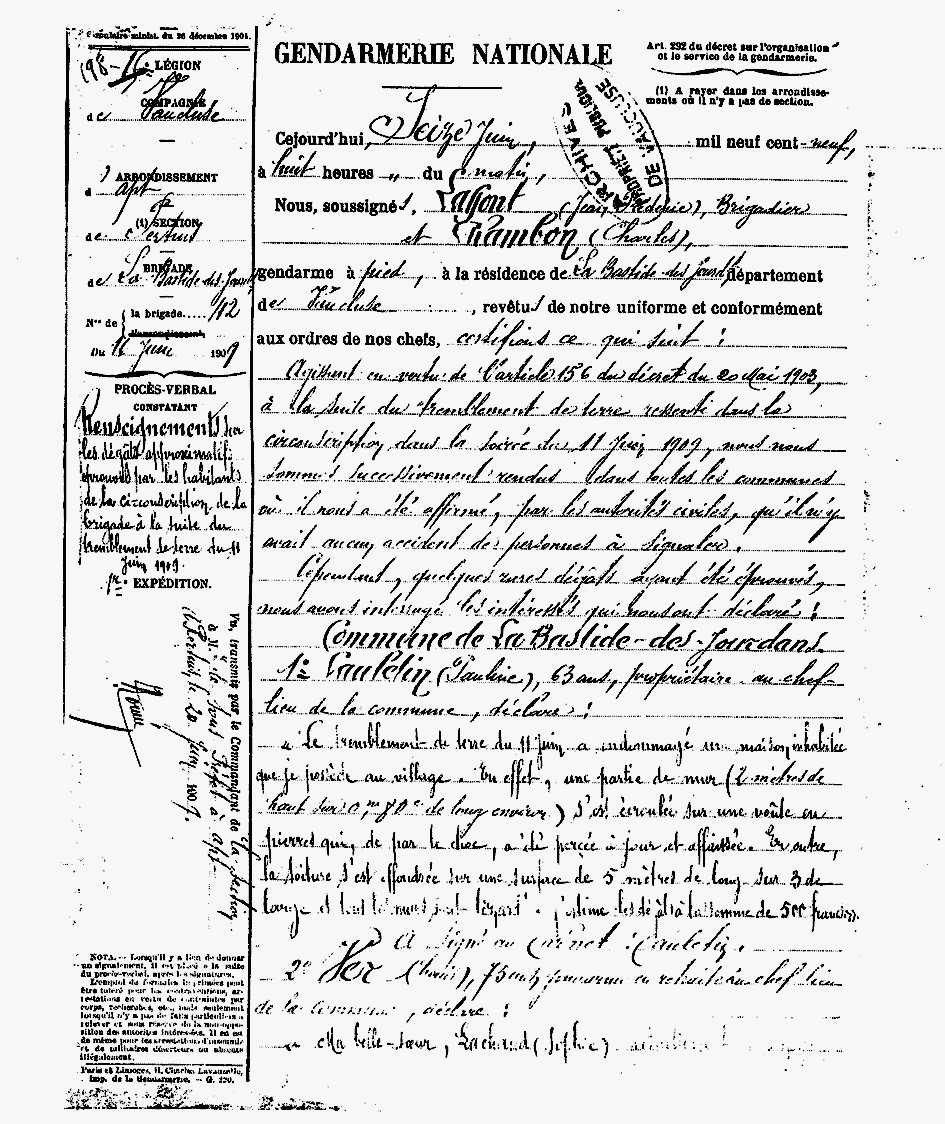 Circulaire minist. du 26 décembre 1901.
198 - 15e LÉGION
COMPAGNIE
de Vaucluse
ARRONDISSEMENT
d'Apt
(1) SECTION
de Pertuis
BRIGADE
de La Bastide-des-Jourdans
Nos de { la brigade..... 42
l'arrondissement
Du 16 Juin 1909
PROCÈS-VERBAL
CONSTATANT
Renseignements sur
les dégâts approximatifs
éprouvés par les habitants
de la circonscription de la
brigade à la suite du
tremblement de terre du 11
Juin 1909.
1re EXPÉDITION.
Vu, transmis par le Commandant de la Section
à M. le Sous Préfet à Apt
Pertuis le 20 Juin 1909.
NOTA. — Lorsqu'il y a lieu de donner
un signalement, il est placé à la suite
du procès-verbal, après les signatures.
L'emploi de formules imprimées peut
être toléré pour les contraventions, ar-
restations en vertu de contraintes par
corps, recherches, etc., mais seulement
lorsqu'il n'y a pas de faits particuliers à
relever et sous réserve de la non-oppo-
sition des autorités intéressées. Il en est
de même pour les arrestations d'insoumis
et de militaires déserteurs ou absents
illégalement.
Paris et Limoges, H. Charles-Lavauzelle,
Imp. de la Gendarmerie. — G. 120.
GENDARMERIE NATIONALE
Art. 292 du décret sur l'organisation
et le service de la gendarmerie.
(1) A payer dans les arrondisse-
ments où il n'y a pas de section.
ARCHIVES
PROPRIÉTÉ PUBLIQUE
DE VAUCLUSE
Cejourd'hui, Seize Juin, mil neuf cent neuf,
à huit heures „ du matin,
Nous, soussignés, Laffont (Jean, Frédéric), Brigadier
et Chambon (Charles),
gendarme à pied, à la résidence de La Bastide-des-Jourdans département
de Vaucluse, revêtus de notre uniforme et conformément
aux ordres de nos chefs, certifions ce qui suit :
Agissant en vertu de l'article 156 du décret du 20 Mai 1903,
à la suite du tremblement de terre ressenti dans la
circonscription dans la soirée du 11 Juin 1909, nous nous
sommes successivement rendus dans toutes les communes
où il nous a été affirmé, par les autorités civiles, qu'il n'y
avait aucun accident de personnes à signaler.
Cependant, quelques rares dégâts ayant été éprouvés,
nous avons interrogé les intéressés qui nous ont déclaré :
Commune de La Bastide-des-Jourdans.
1° Pauletin (Pauline), 63 ans, propriétaire au chef-
lieu de la commune, déclare :
„ Le tremblement de terre du 11 Juin a endommagé une maison inhabitée
que je possède au village. En effet, une partie de mur (2 mètres de
haut sur 0m,80c de long environ) s'est écroulée sur une voûte en
pierres qui, de par le choc, a été percée à jour et affaissée. En outre,
la toiture s'est effondrée sur une surface de 5 mètres de long sur 3 de
large et tout les murs sont lézardés. J'estime les dégâts à la somme de 500 francs.
A signé au carnet : Pauletin.
2° Ver 75 ans, en retraite au chef lieu
de la commune, déclare :
„ Ma belle-sœur, Lachaud (Sophie)